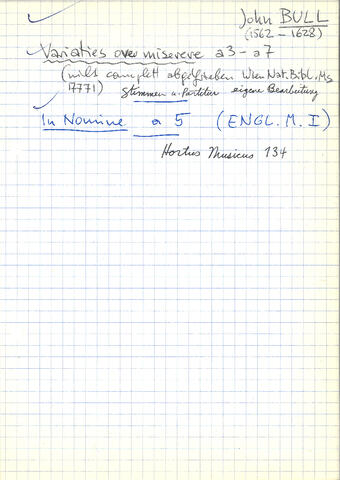 John BULL
(1562 – 1628)
Variaties over miserere a3 – a7
(nicht complett abgeschrieben Wien Nat. Bibl. Ms
17771) Stimmen u. Partitur eigene Bearbeitung
In Nomine a 5 (ENGL. M. I)
Hortus Musicus 134